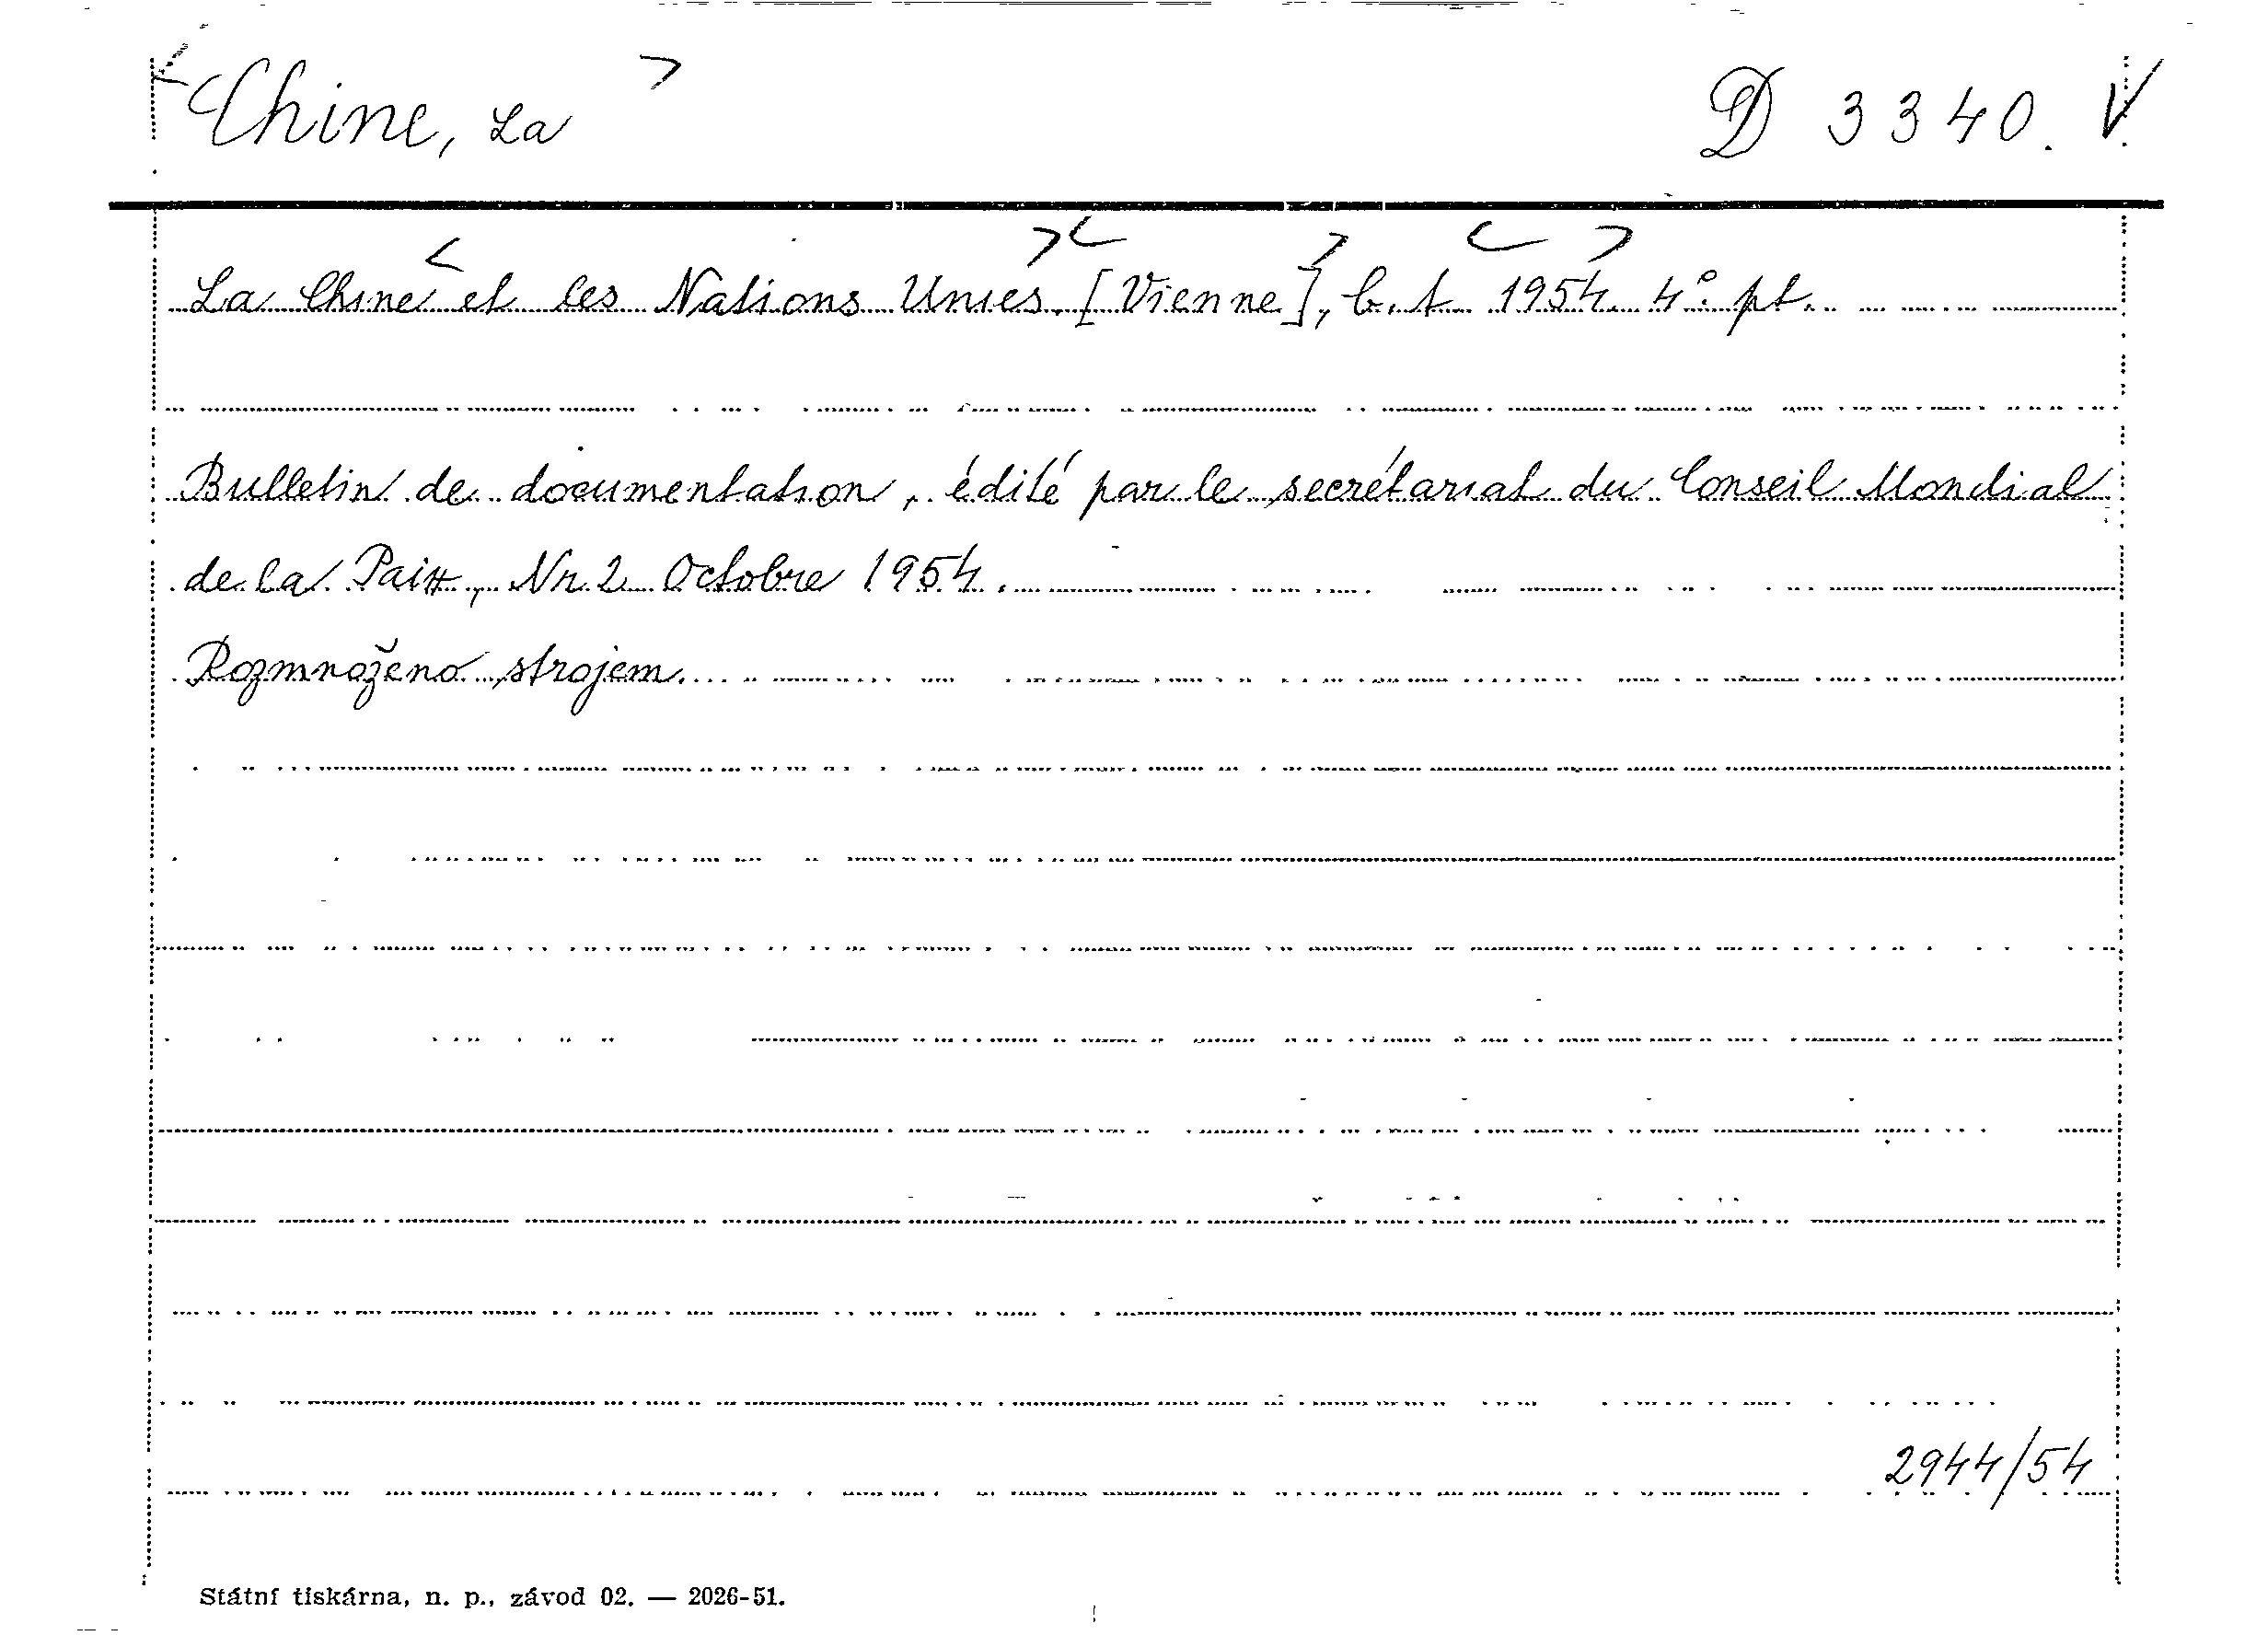 Chine, La D 3340. V
La Chine et les Nations Unies. [Vienne], b. t. 1954. 4°. pt.
Bulletin de documentation, édité par le secrétariat du Conseil Mondial
de la Paix, Nr. 2 Octobre 1954.
Rozmnoženo strojem.
2944/54
Státní tiskárna, n. p., závod 02. — 2026-51.